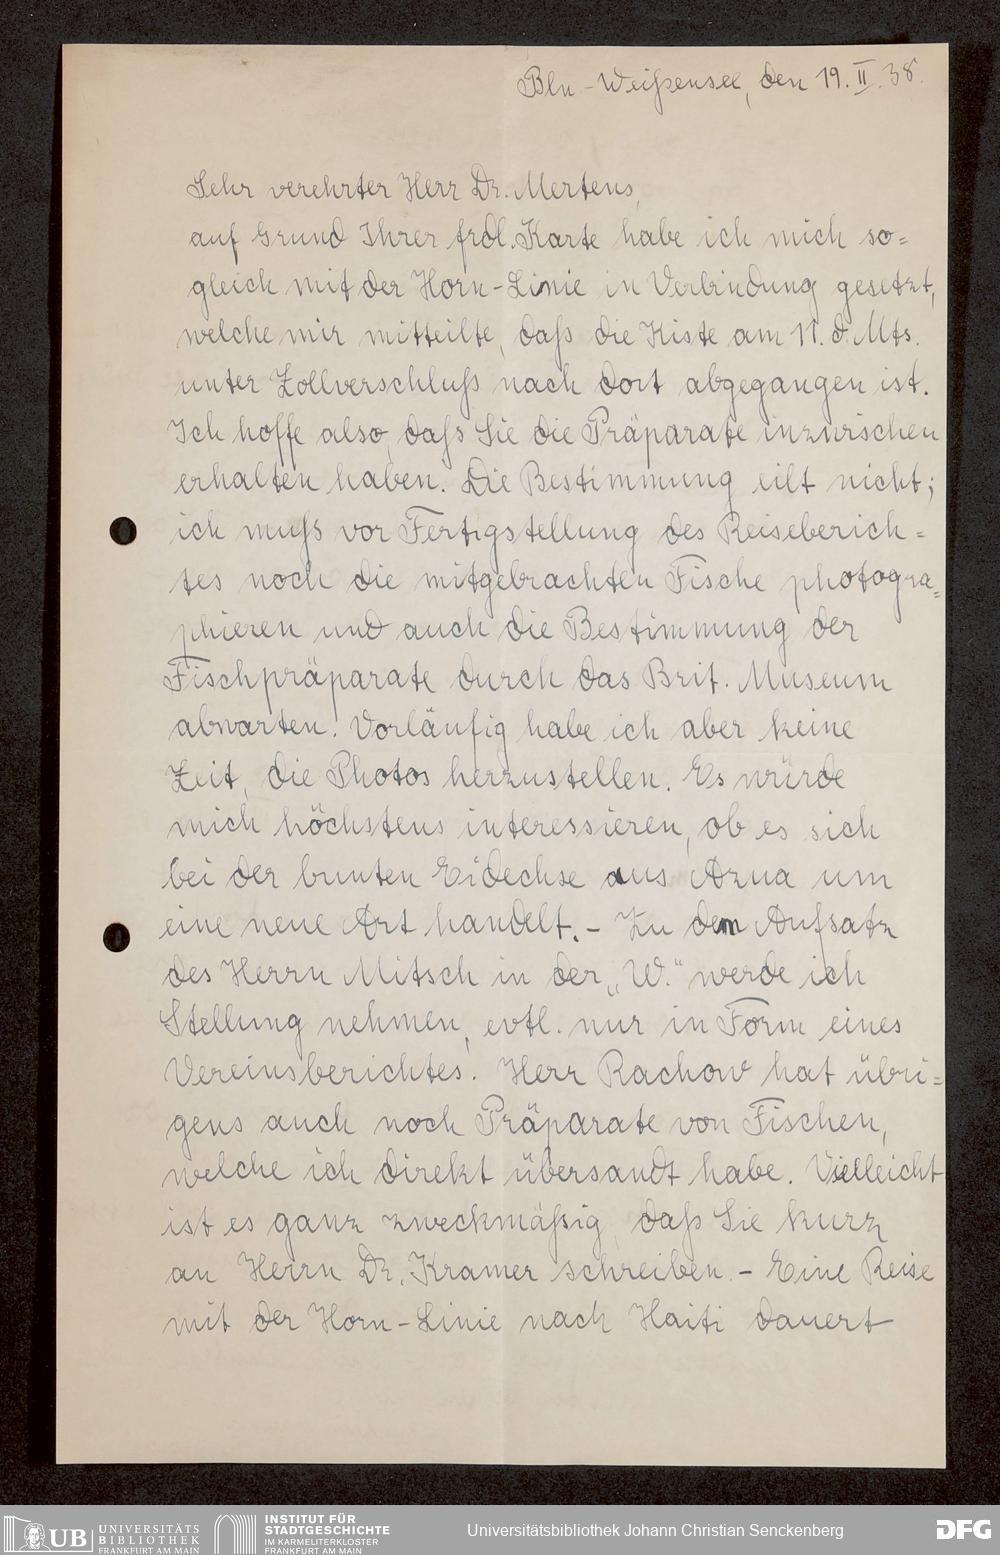 Bln-Weißensee, den 19. II. 38.
Sehr verehrter Herr Dr. Mertens,
auf Grund Ihrer frdl. Karte habe ich mich so=
gleich mit der Horn-Linie in Verbindung gesetzt,
welche mir mitteilte, daß die Kiste am 11. d. Mts.
unter Zollverschluß nach dort abgegangen ist.
Ich hoffe also, daß Sie die Präparate inzwischen
erhalten haben. Die Bestimmung eilt nicht;
ich muß vor Fertigstellung des Reiseberich=
tes noch die mitgebrachten Fische photogra=
phieren und auch die Bestimmung der
Fischpräparate durch das Brit. Museum
abwarten. Vorläufig habe ich aber keine
Zeit, die Photos herzustellen. Es würde
mich höchstens interessieren, ob es sich
bei der bunten Eidechse aus Azua um
eine neue Art handelt. – Zu dem Aufsatz
des Herrn Mitsch in der „W." werde ich
Stellung nehmen, evtl. nur in Form eines
Vereinsberichtes. Herr Rachow hat übri=
gens auch noch Präparate von Fischen,
welche ich direkt übersandt habe. Vielleicht
ist es ganz zweckmäßig, daß Sie kurz
an Herrn Dr. Kramer schreiben. – Eine Reise
mit der Horn-Linie nach Haiti dauert
UB UNIVERSITÄTS
BIBLIOTHEK
FRANKFURT AM MAIN
INSTITUT FÜR
STADTGESCHICHTE
IM KARMELITERKLOSTER
FRANKFURT AM MAIN
Universitätsbibliothek Johann Christian Senckenberg
DFG